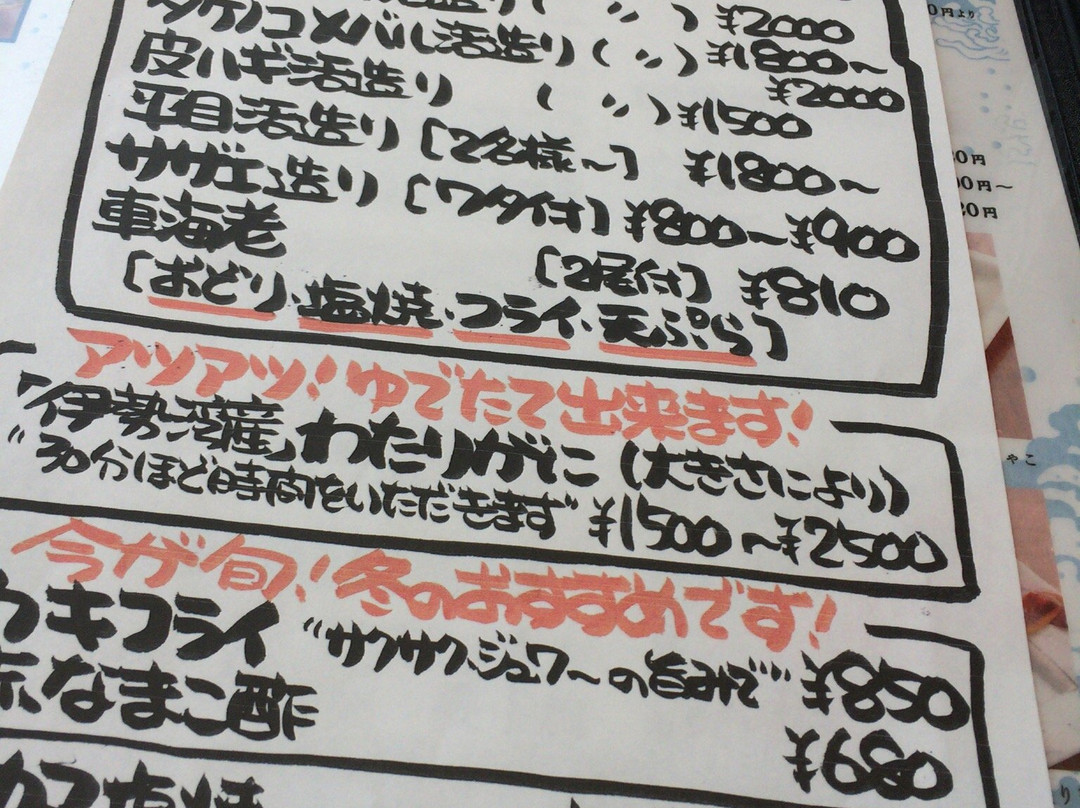 (〃) ¥2000
タケノコメバル活造り (〃) ¥1800〜¥2000
皮ハギ活造り (〃) ¥1500
平目活造り [2名様〜] ¥1800〜
サザエ造り [ワタ付] ¥800〜¥900
車海老 [2尾付] ¥810
[おどり・塩焼・フライ・天ぷら]
アツアツ!ゆでたて出来ます!
"伊勢湾産"わたりがに (大きさにより)
"30分ほど時間をいただきます" ¥1500〜¥2500
今が旬!冬のおすすめです!
カキフライ "サクサク、ジュワ〜の旨みで" ¥850
赤なまこ酢 ¥680
塩焼
0円より
0円
00円〜
20円
やこ